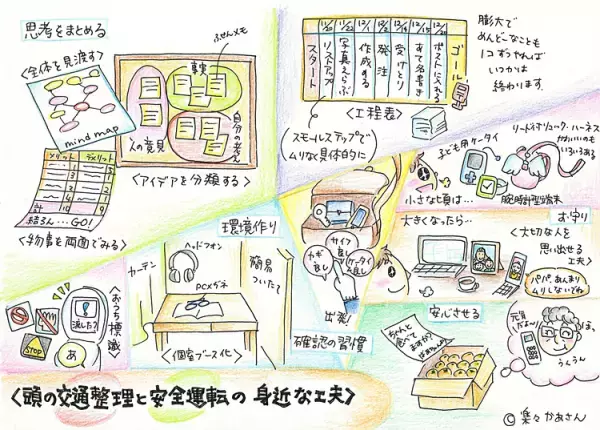 思考をまとめる
<全体を見渡す>
mind map
ふせんメモ
事実
人の意見
自分の考え
<アイデアを分類する>
メリット
デメリット
計
結論…GO!
<物事を両面でみる>
11/20
11/22
12/1
12/4
12/9
12/15
12/20
スタート
リストアップ
写真えらぶ
作成する
発注
受けとり
あて名書き
ポストに入れる
ゴール
<工程表>
スモールステップで
ムリなく具体的に
膨大で
めんどーなことも
1コずつやれば
いつかは
終わります。
子ども用ケータイ
リード付リュック・ハーネス
かわいいのも
いろいろある
小さな頃は…
腕時計型端末
お守り
大きくなったら…
<大切な人を
思い出せる
工夫>
パパ、あんまり
ムリしないでね
環境作り
カーテン
ヘッドフォン
PCメガネ
簡易
ついたて
<個室ブース化>
サイフ
良し
カギ
良し
ケータイ
良し
出発!
確認の習慣
流した?
STOP
あ
<おうち標識>
安心させる
ちゃんと
食べて
ますか?
元気
だよ〜
はぁ、
うんうん
<頭の交通整理と安全運転の身近な工夫>
© 楽々かあさん